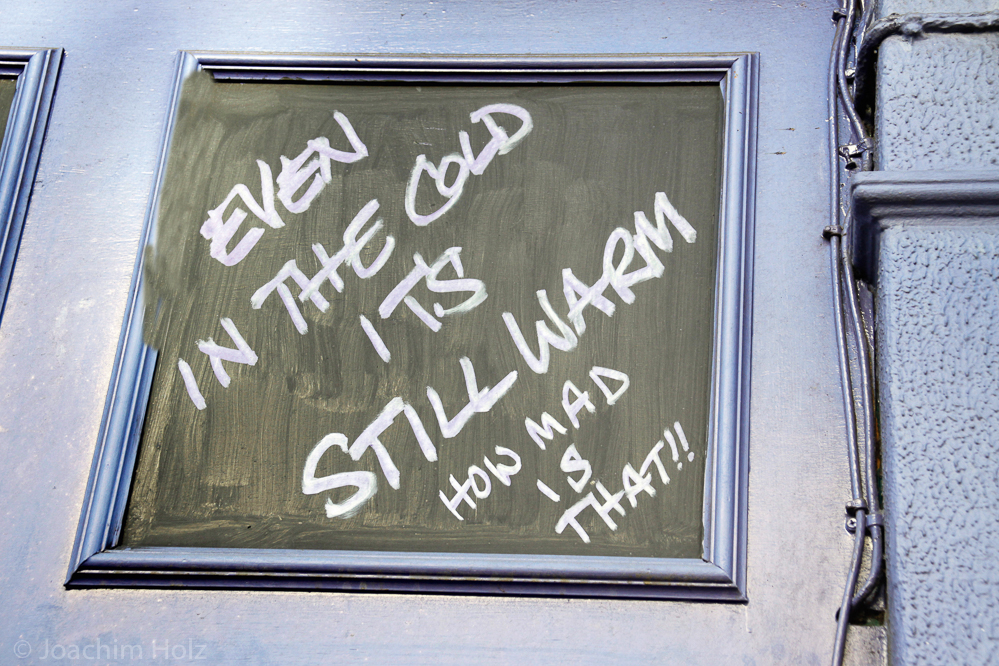 EVEN
IN THE COLD
ITS
STILL WARM
HOW MAD
IS
THAT!!
© Joachim Holz